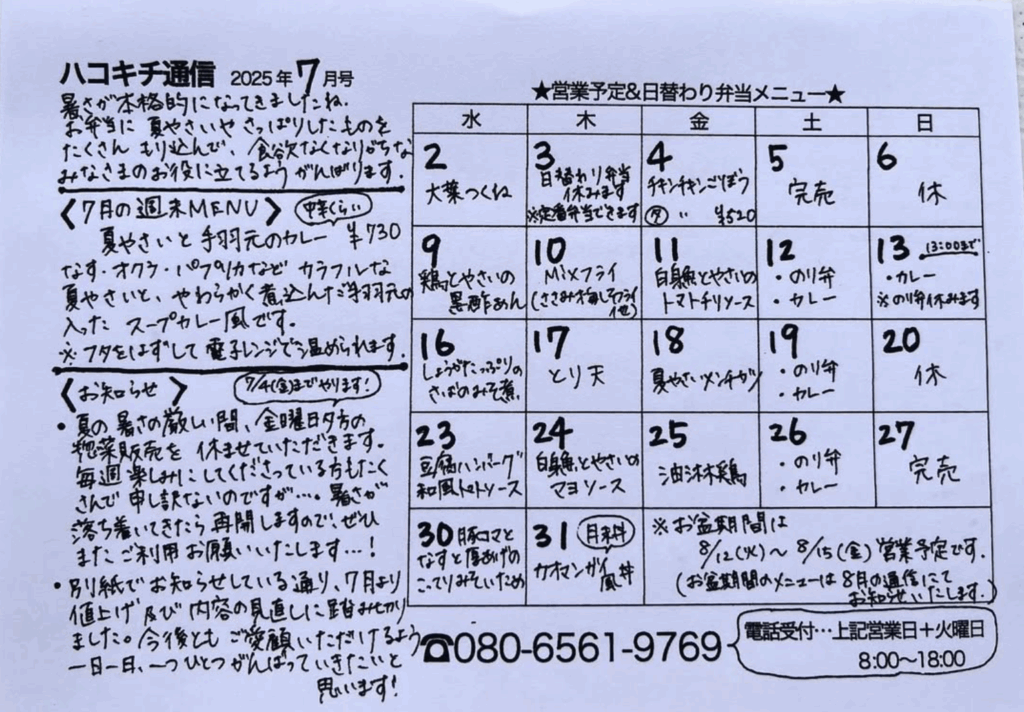 ハコキチ通信 2025年7月号
暑さが本格的になってきましたね。
お弁当に 夏やさいや さっぱりしたものを
たくさん もり込んで、食欲なくなりがちな
みなさまのお役に立てるよう がんばります。
〈7月の週末MENU〉 中辛くらい
夏やさいと 手羽元のカレー ¥730
なす・オクラ・パプリカなど カラフルな
夏やさいと、やわらかく煮込んだ手羽元の
入った スープカレー風です。
※フタをはずして 電子レンジで温められます。
〈お知らせ〉 7/4(金)までやります!
• 夏の 暑さの厳しい間、金曜日夕方の
惣菜販売を 休ませていただきます。
毎週 楽しみにしてくださっている方もたく
さんで 申し訳ないのですが…。暑さが
落ち着いてきたら 再開しますので、ぜひ
また ご利用 お願いいたします…!
• 別紙で お知らせしている通り、7月より
値上げ 及び 内容の見直しに踏み切り
ました。今後とも ご愛顧いただけるよう
一日一日、一つひとつ がんばって いきたいと
思います!
★営業予定&日替わり弁当メニュー★
水 木 金 土 日
2
大葉つくね
3
日替わり弁当
休みます
※定番弁当できます
4
チキンチキンごぼう
夕 〃 ¥520
5
完売
6
休
9
鶏とやさいの
黒酢あん
10
Mixフライ
(ささみ梅しそフライ
他)
11
白身魚とやさいの
トマトチリソース
12
・のり弁
・カレー
13 13:00まで
・カレー
※のり弁休みます
16
しょうがたっぷりの
さばのみそ煮
17
とり天
18
夏やさいメンチカツ
19
・のり弁
・カレー
20
休
23
豆腐ハンバーグ
和風トマトソース
24
白身魚とやさいの
マヨソース
25
油淋鶏
26
・のり弁
・カレー
27
完売
30 豚コマと
なすと厚あげの
こってりみそいため
31 月末丼
カオマンガイ
風丼
※お盆期間は
8/12(火)～8/15(金)営業予定です。
(お盆期間のメニューは 8月の通信にて
お知らせいたします。)
☎080-6561-9769
電話受付…上記営業日+火曜日
8:00～18:00